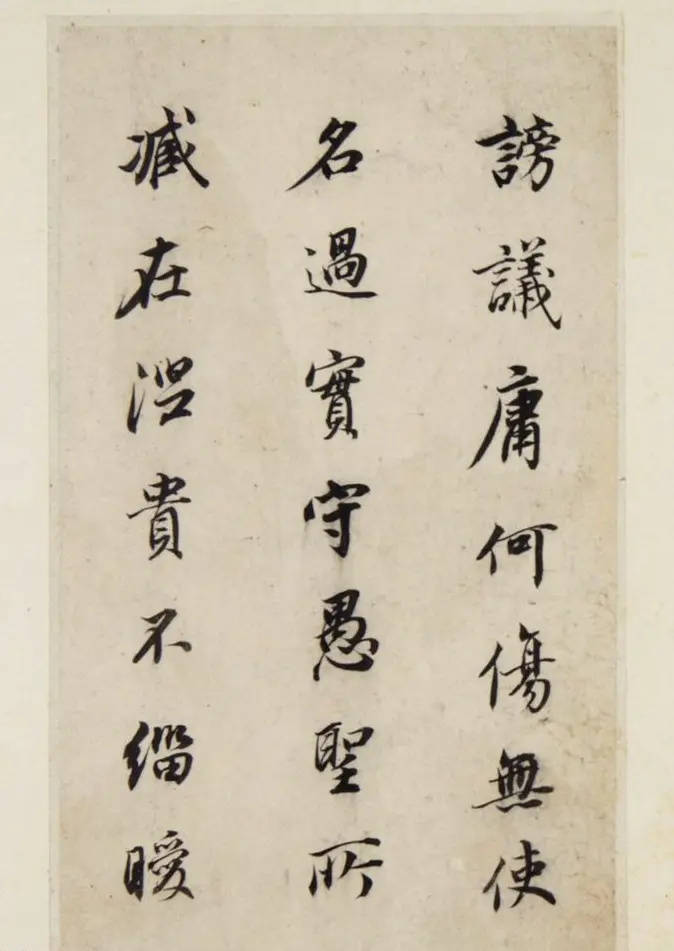 謗議庸何傷無使
名過實守愚聖所
臧在涅貴不緇曖